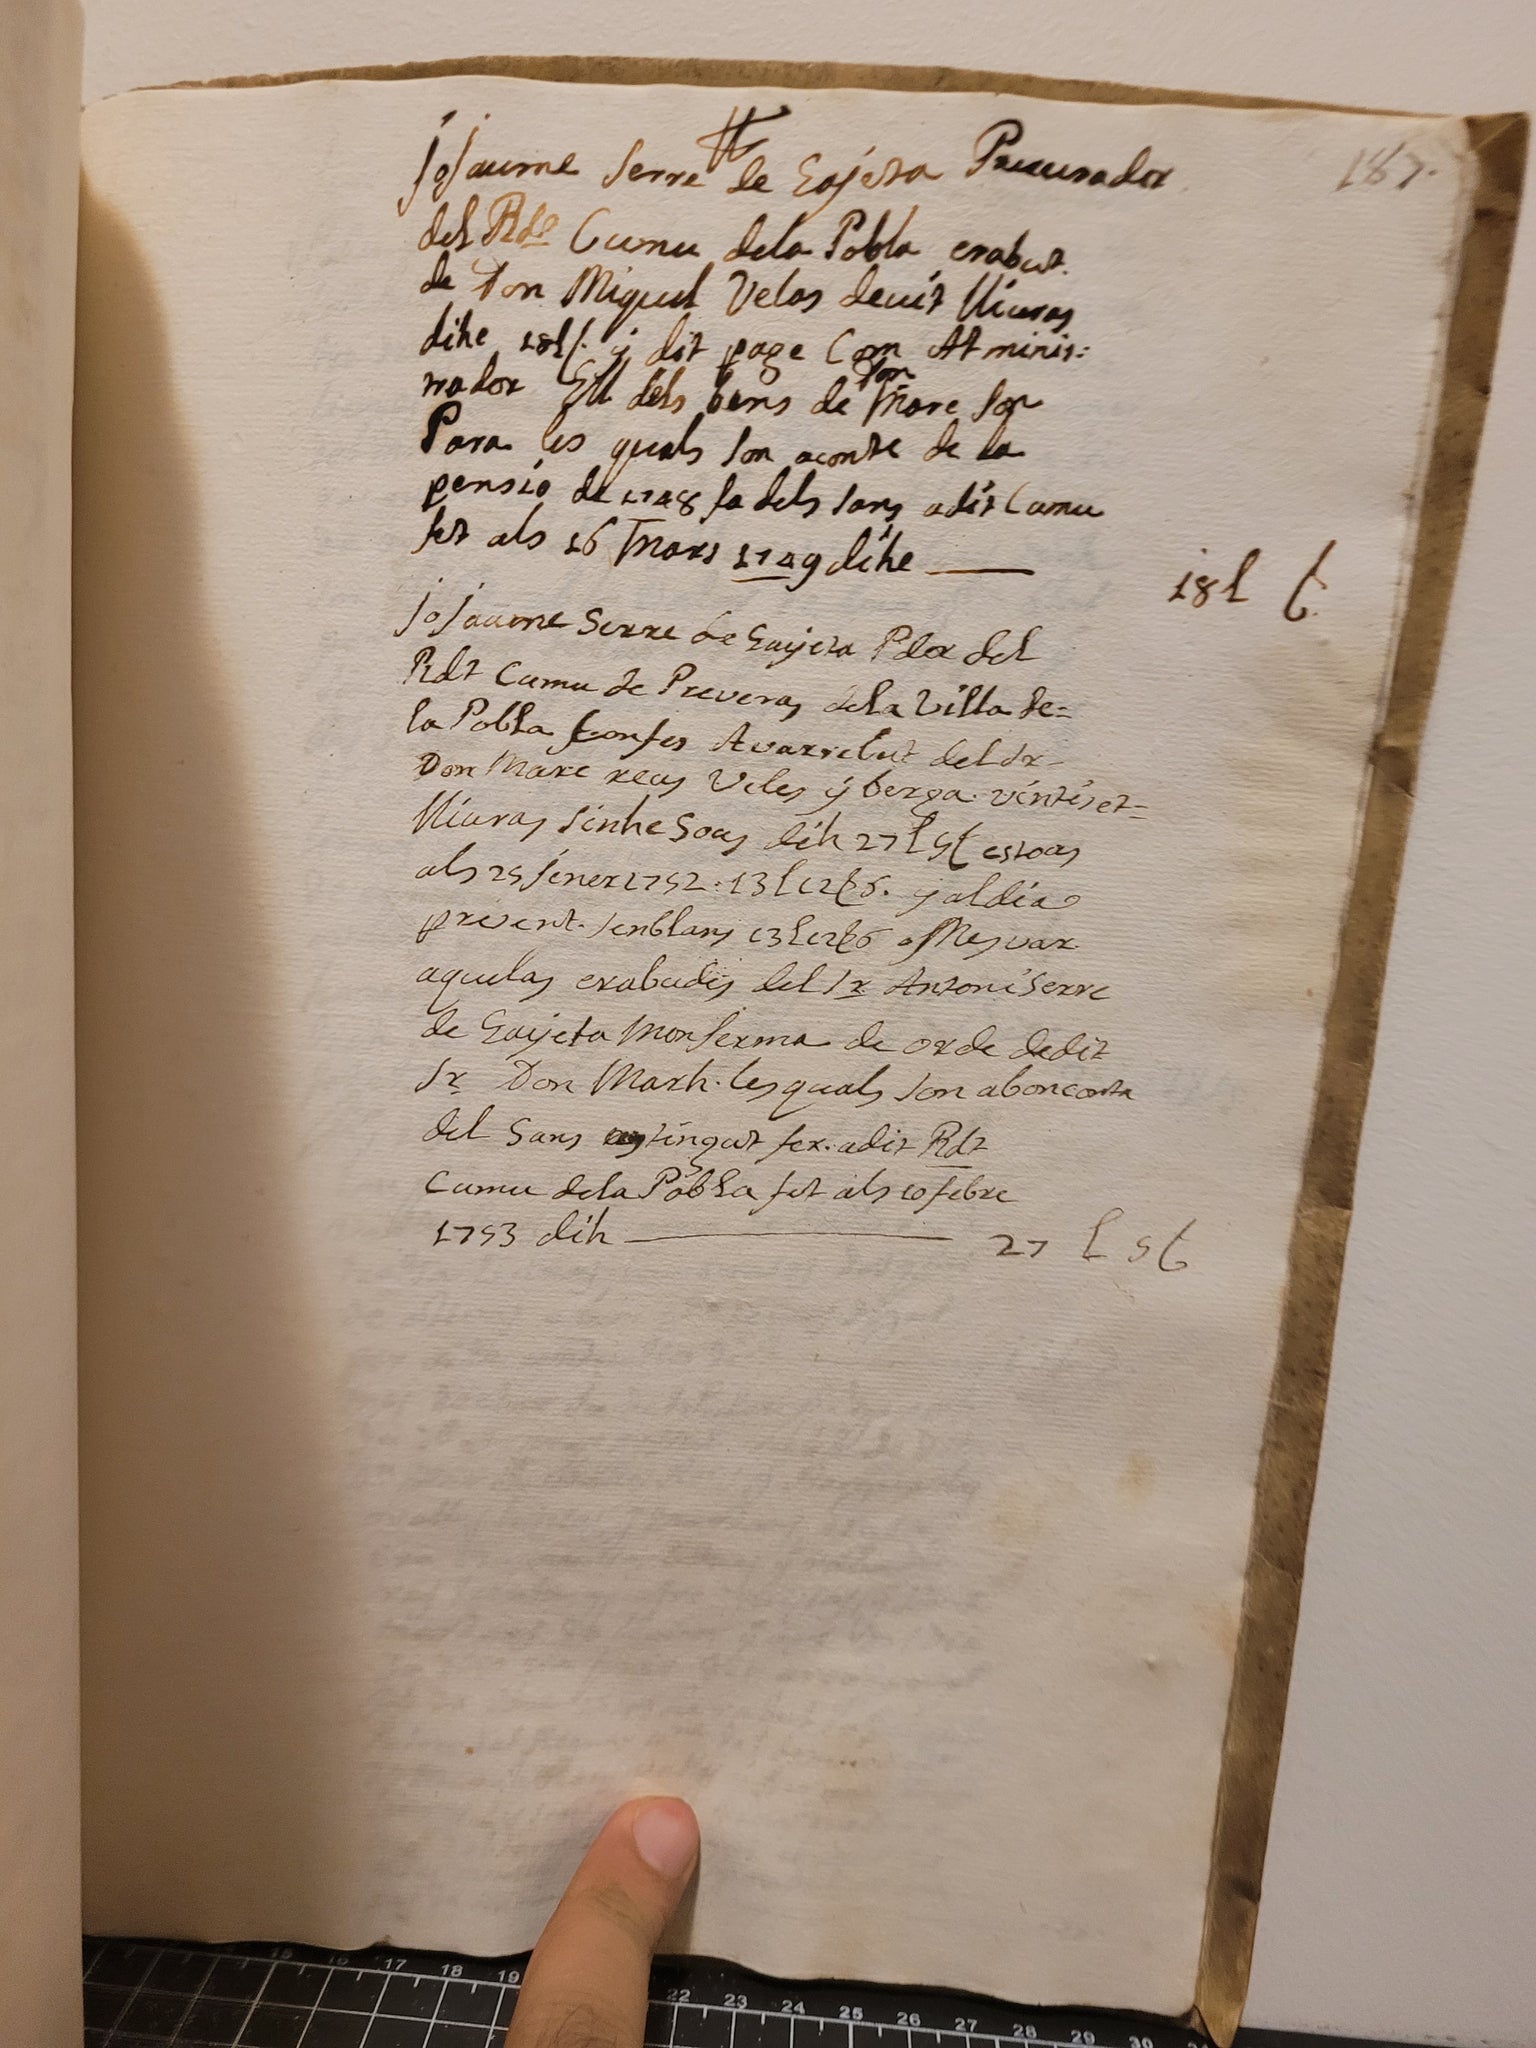 187.
jo Jaume Serre de Gajeta Procurador
del Rdt Cumu dela Pobla erabut
de Don Miquel Velas devuit lliuras
dihe 18l ſ. y dit page Com Atminis:
trador Ell dels bens de Don Marc Son
Para les quals son aconte de la
pensio de 1748 fa dels sans a dit Cumu
fet als 16 Mars 1749 dihe — 18l ſ.
jo Jaume Serre de Gayeta Pdor del
Rdt Cumu de Preveras dela Villa de=
la Pobla confes Avarrebut del Sr
Don Marc reas Veles y berga vintiset=
lliuras sinhe Sous dih 27 l 5 ſ estoas
als 25 jiner 1752. 13 l 12 ſ 6. y al dia
prevent semblans 13 l 12 ſ 6 Mes var
aquelas erabudis del Sr Antoni Serre
de Gayeta Mon Jerma de orde de dit
Sr Don Marh. les quals son abonconta
del Sans tingut fer a dit Rdt
Cumu dela Pobla fet als 10 febre
1753 dih — 27 l 5 ſ
15 16 17 18 19 22 23 24 25 26 27 28 29 30